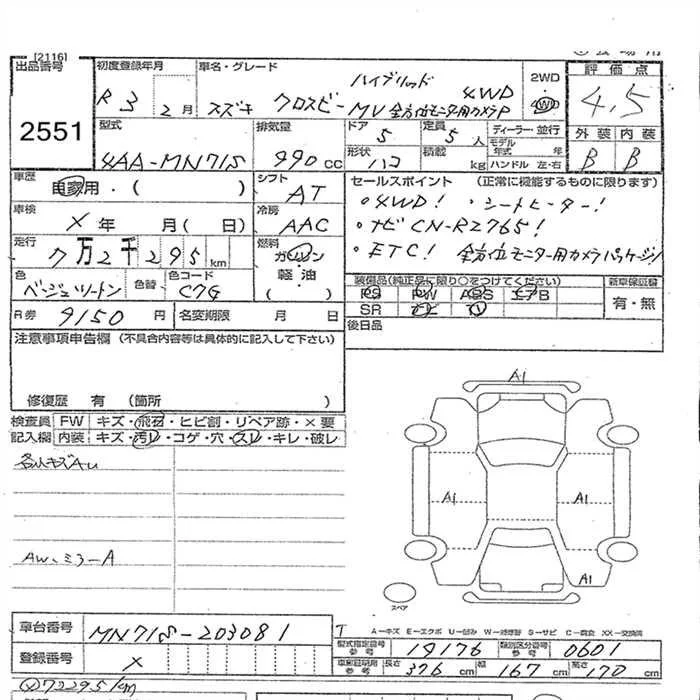 [2116]
出品番号 2551
初度登録年月 R 3 2月
車名・グレード スズキ クロスビー ハイブリッド MV 4WD 全方位モニター用カメラP
2WD 4WD
評価点 4.5
外装 内装
B B
型式 4AA-MN71S
排気量 990 cc
ドア 5 定員 5人
形状 ハコ 積載 kg
ディーラー・並行
モデル年式 年
ハンドル 左・右
車歴 自家用・( )
シフト AT
車検 × 年 月( 日)
冷房 AAC
走行 7万2千295km
燃料 ガソリン 軽・油 ( )
色 ベージュツートン 色替 色コード C7G
R券 9150円 名変期限 月 日
セールスポイント (正常に機能するものに限ります)
・4WD! ・シートヒーター!
・ナビCN-RZ765!
・ETC! 全方位モニター用カメラパッケージ!
装備品(純正品に限り○をつけてください)
PS PW ABS エアB
SR
新車保証書 有・無
後日品
注意事項申告欄 (不具合内容等は具体的に記入して下さい)
修復歴 有 (箇所 )
検査員 FW キズ・飛石・ヒビ割・リペア跡・×要
記入欄 内装 キズ・汚レ・コゲ・穴・スレ・キレ・破レ
AW、ミラーA
A1
A1 A1
A1
スペア
A-キズ E-エクボ U-凹み W-補修跡 S-サビ C-腐食 XX-交換済
車台番号 MN71S-203081
登録番号 ×
型式指定番号 参考 19176 類別区分番号 参考 0601
車庫証明用 参考 長さ 376 cm 幅 167 cm 高さ 170 cm
72295km